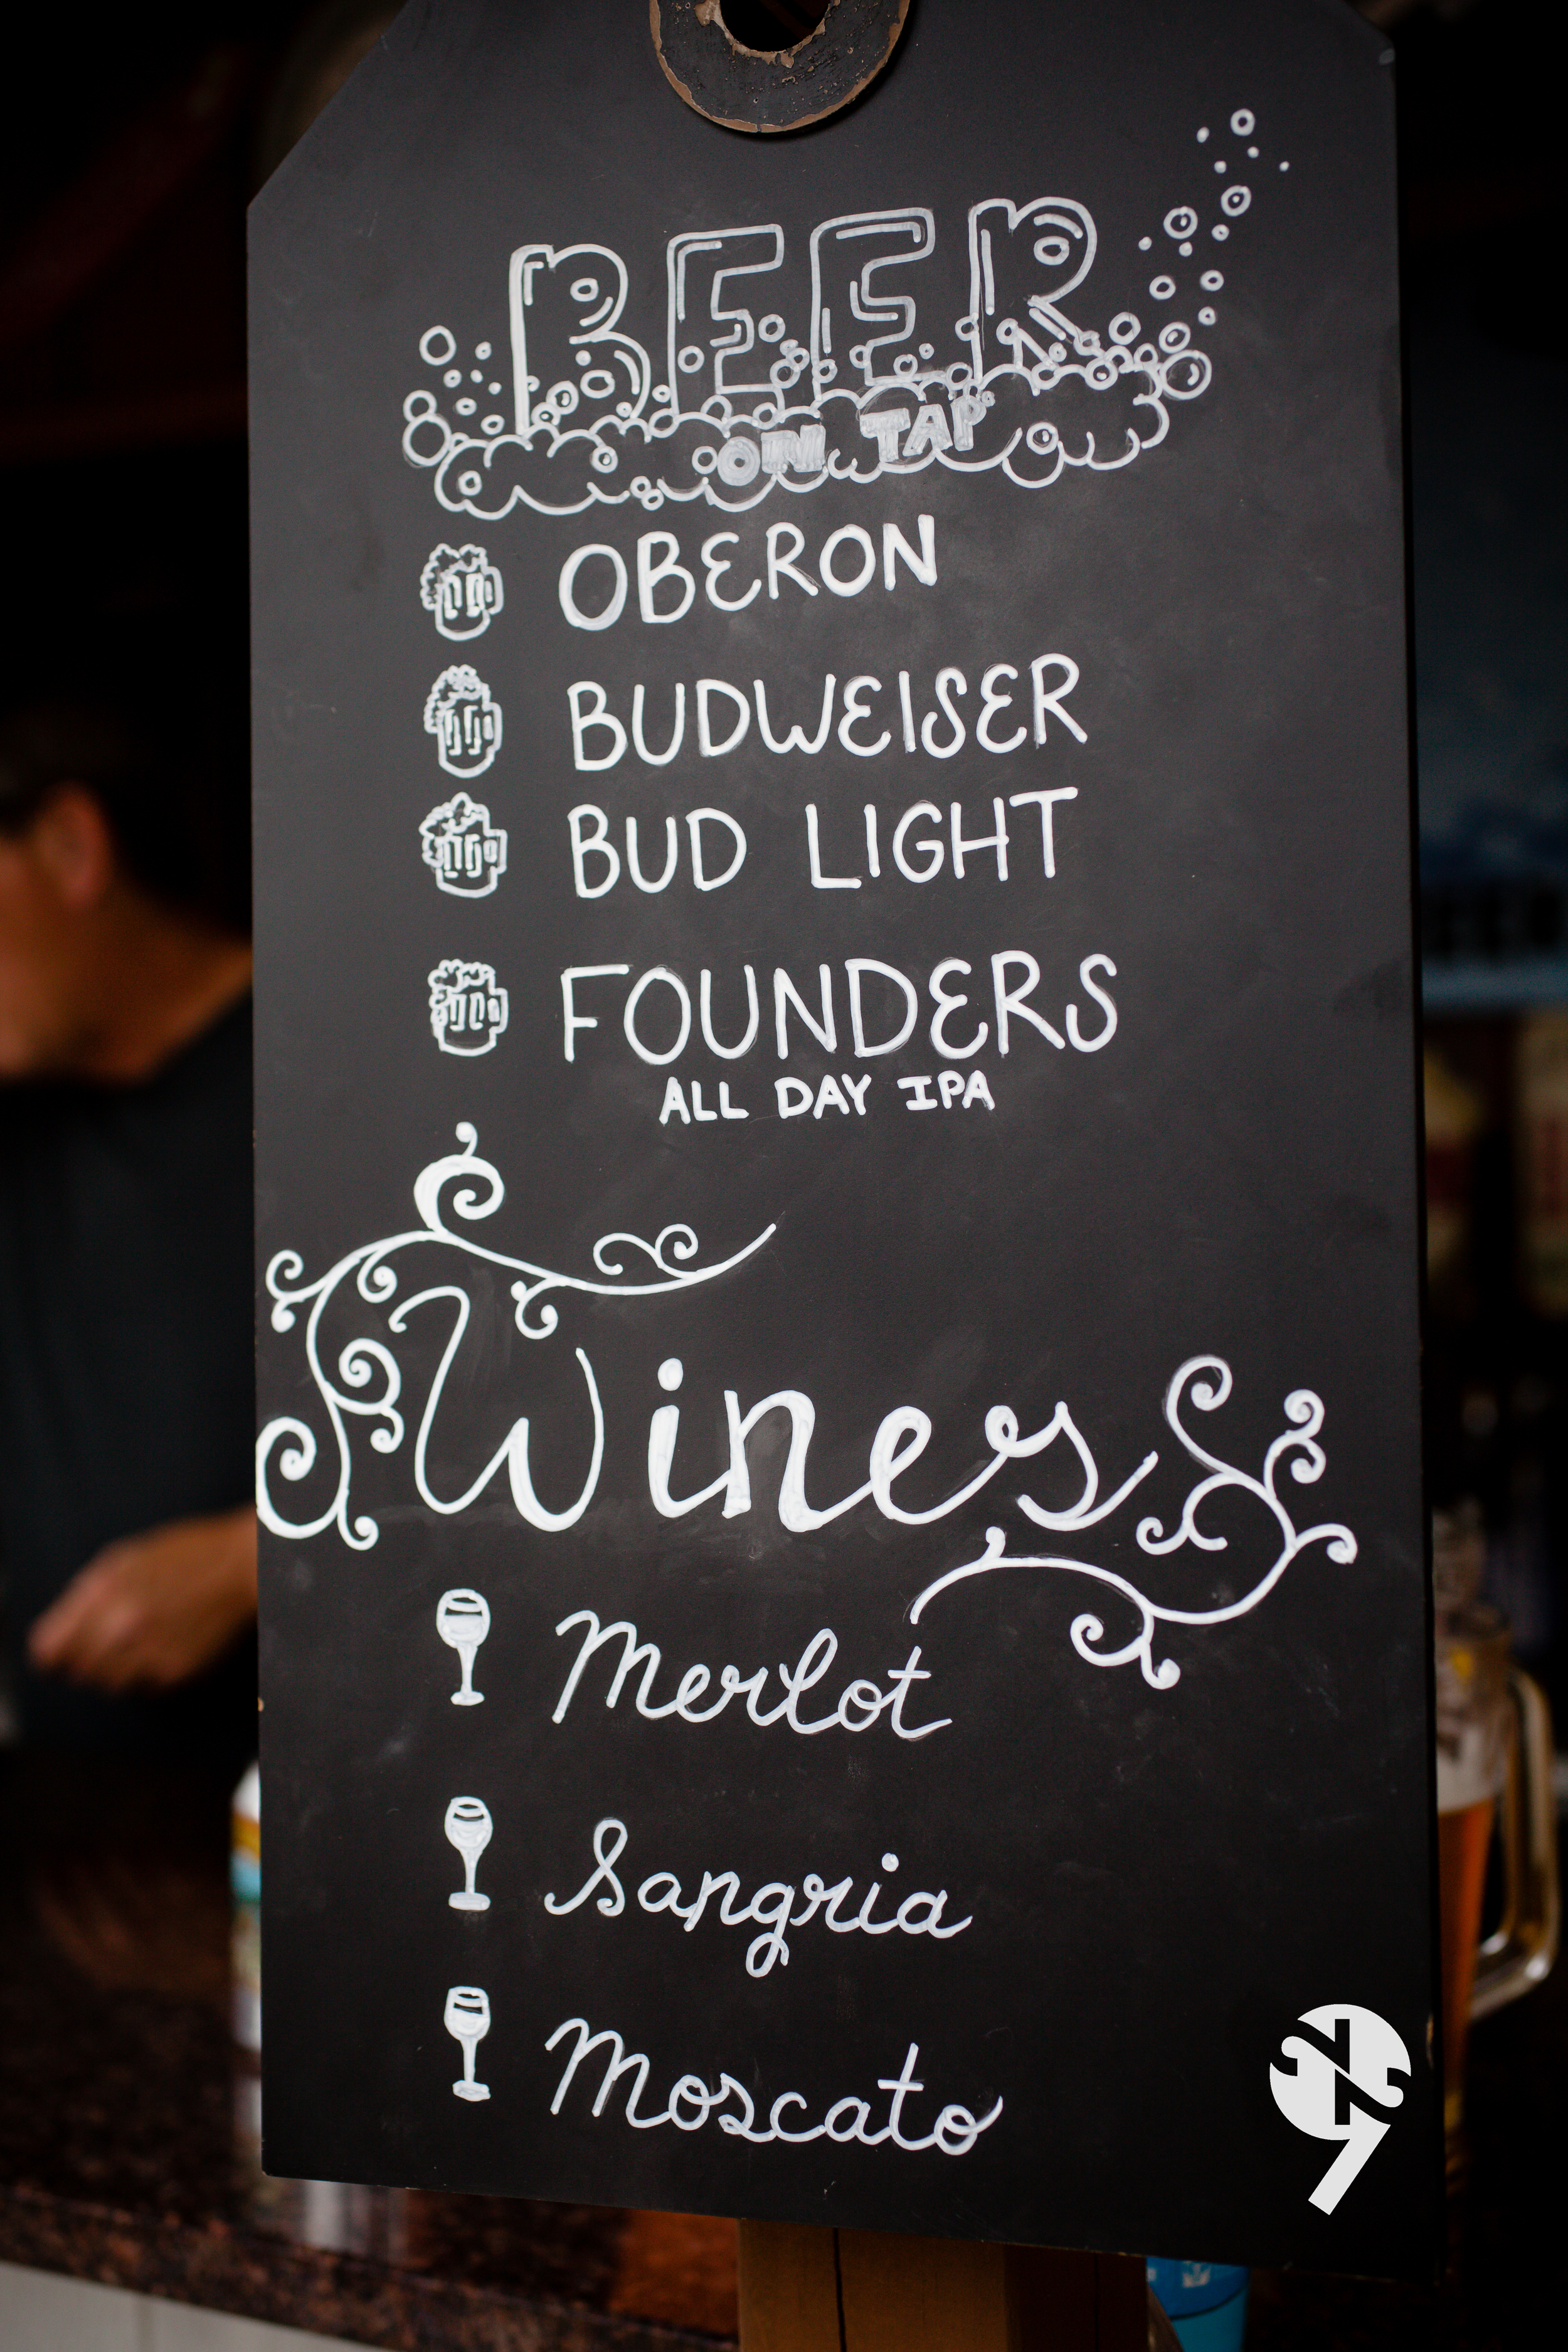 BEER
ON TAP
OBERON
BUDWEISER
BUD LIGHT
FOUNDERS
ALL DAY IPA
Wines
Merlot
Sangria
Moscato